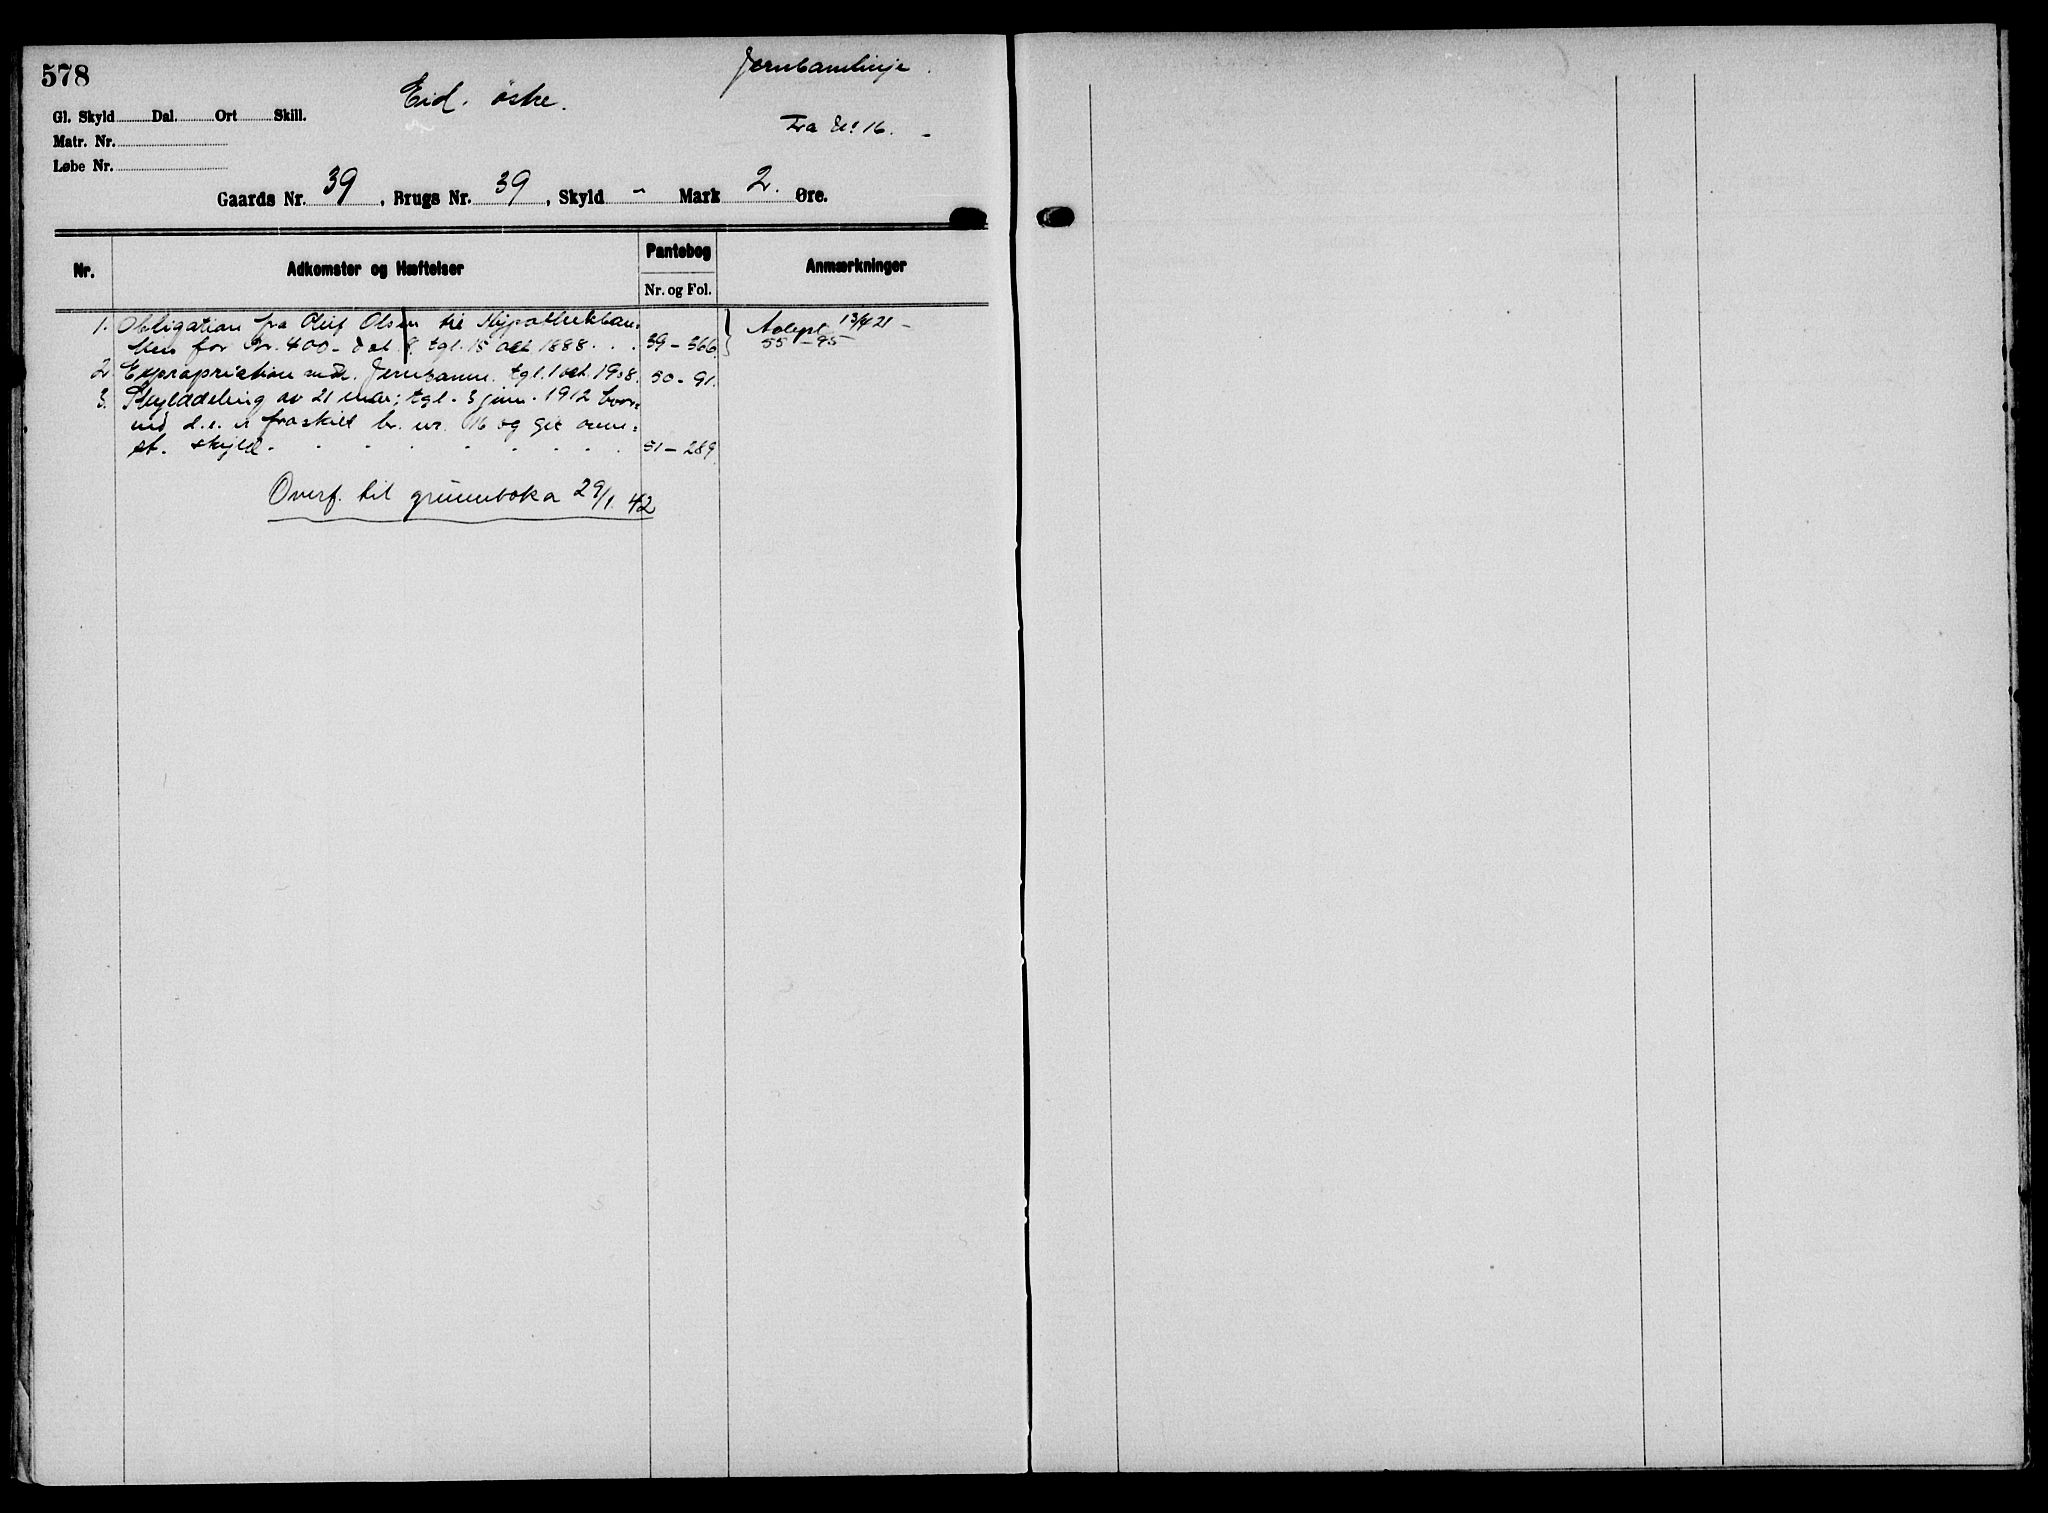 578
Jernbanelinje.
Eid. østre.
Gl. Skyld Dal. Ort Skill.
Fra No 16. -
Matr. Nr.
Løbe Nr.
Gaards Nr. 39, Brugs Nr. 39, Skyld - Mark 2. Øre.
Nr. Adkomster og Hæftelser Pantebog Anmærkninger
Nr. og Fol.
1. Obligation fra Oluf Olsen til Hypothekban- Aslept 13/4 21 -
ken for Kr. 400 - dat. 8, tgl. 15 oct 1888. . . 39 - 366. 55 - 95
2. Expropriation vedr. Jernbanen. tgl. 1 oct. 1908. 50 - 91.
3. Skylddeling av 21 mai; tgl. 3 juni. 1912 hvor-
ved d. e. er fraskilt br. nr. 16 og git oven-
st. skyld. . . . . . . . 51 - 289.
Overf. til grunnboka 29/1. 42